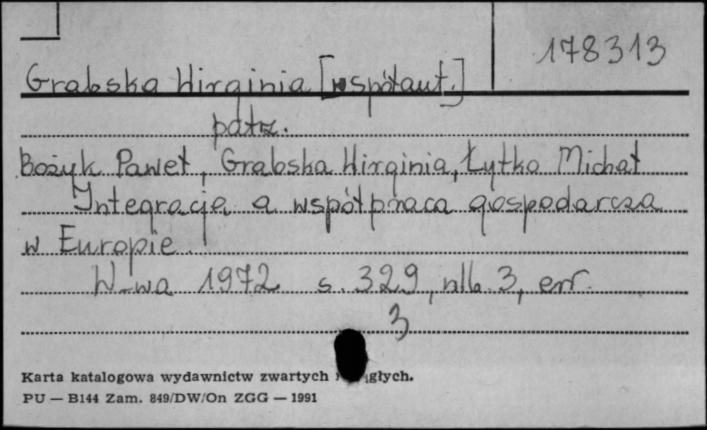 178313
Grabska Wirginia [współaut.]
patrz.
Bożyk Paweł, Grabska Wirginia, Łytko Michał
Integracja a współpraca gospodarcza
w Europie.
W-wa 1972 s. 329, nlb. 3, err.
3
Karta katalogowa wydawnictw zwartych głych.
PU — B144 Zam. 849/DW/On ZGG — 1991